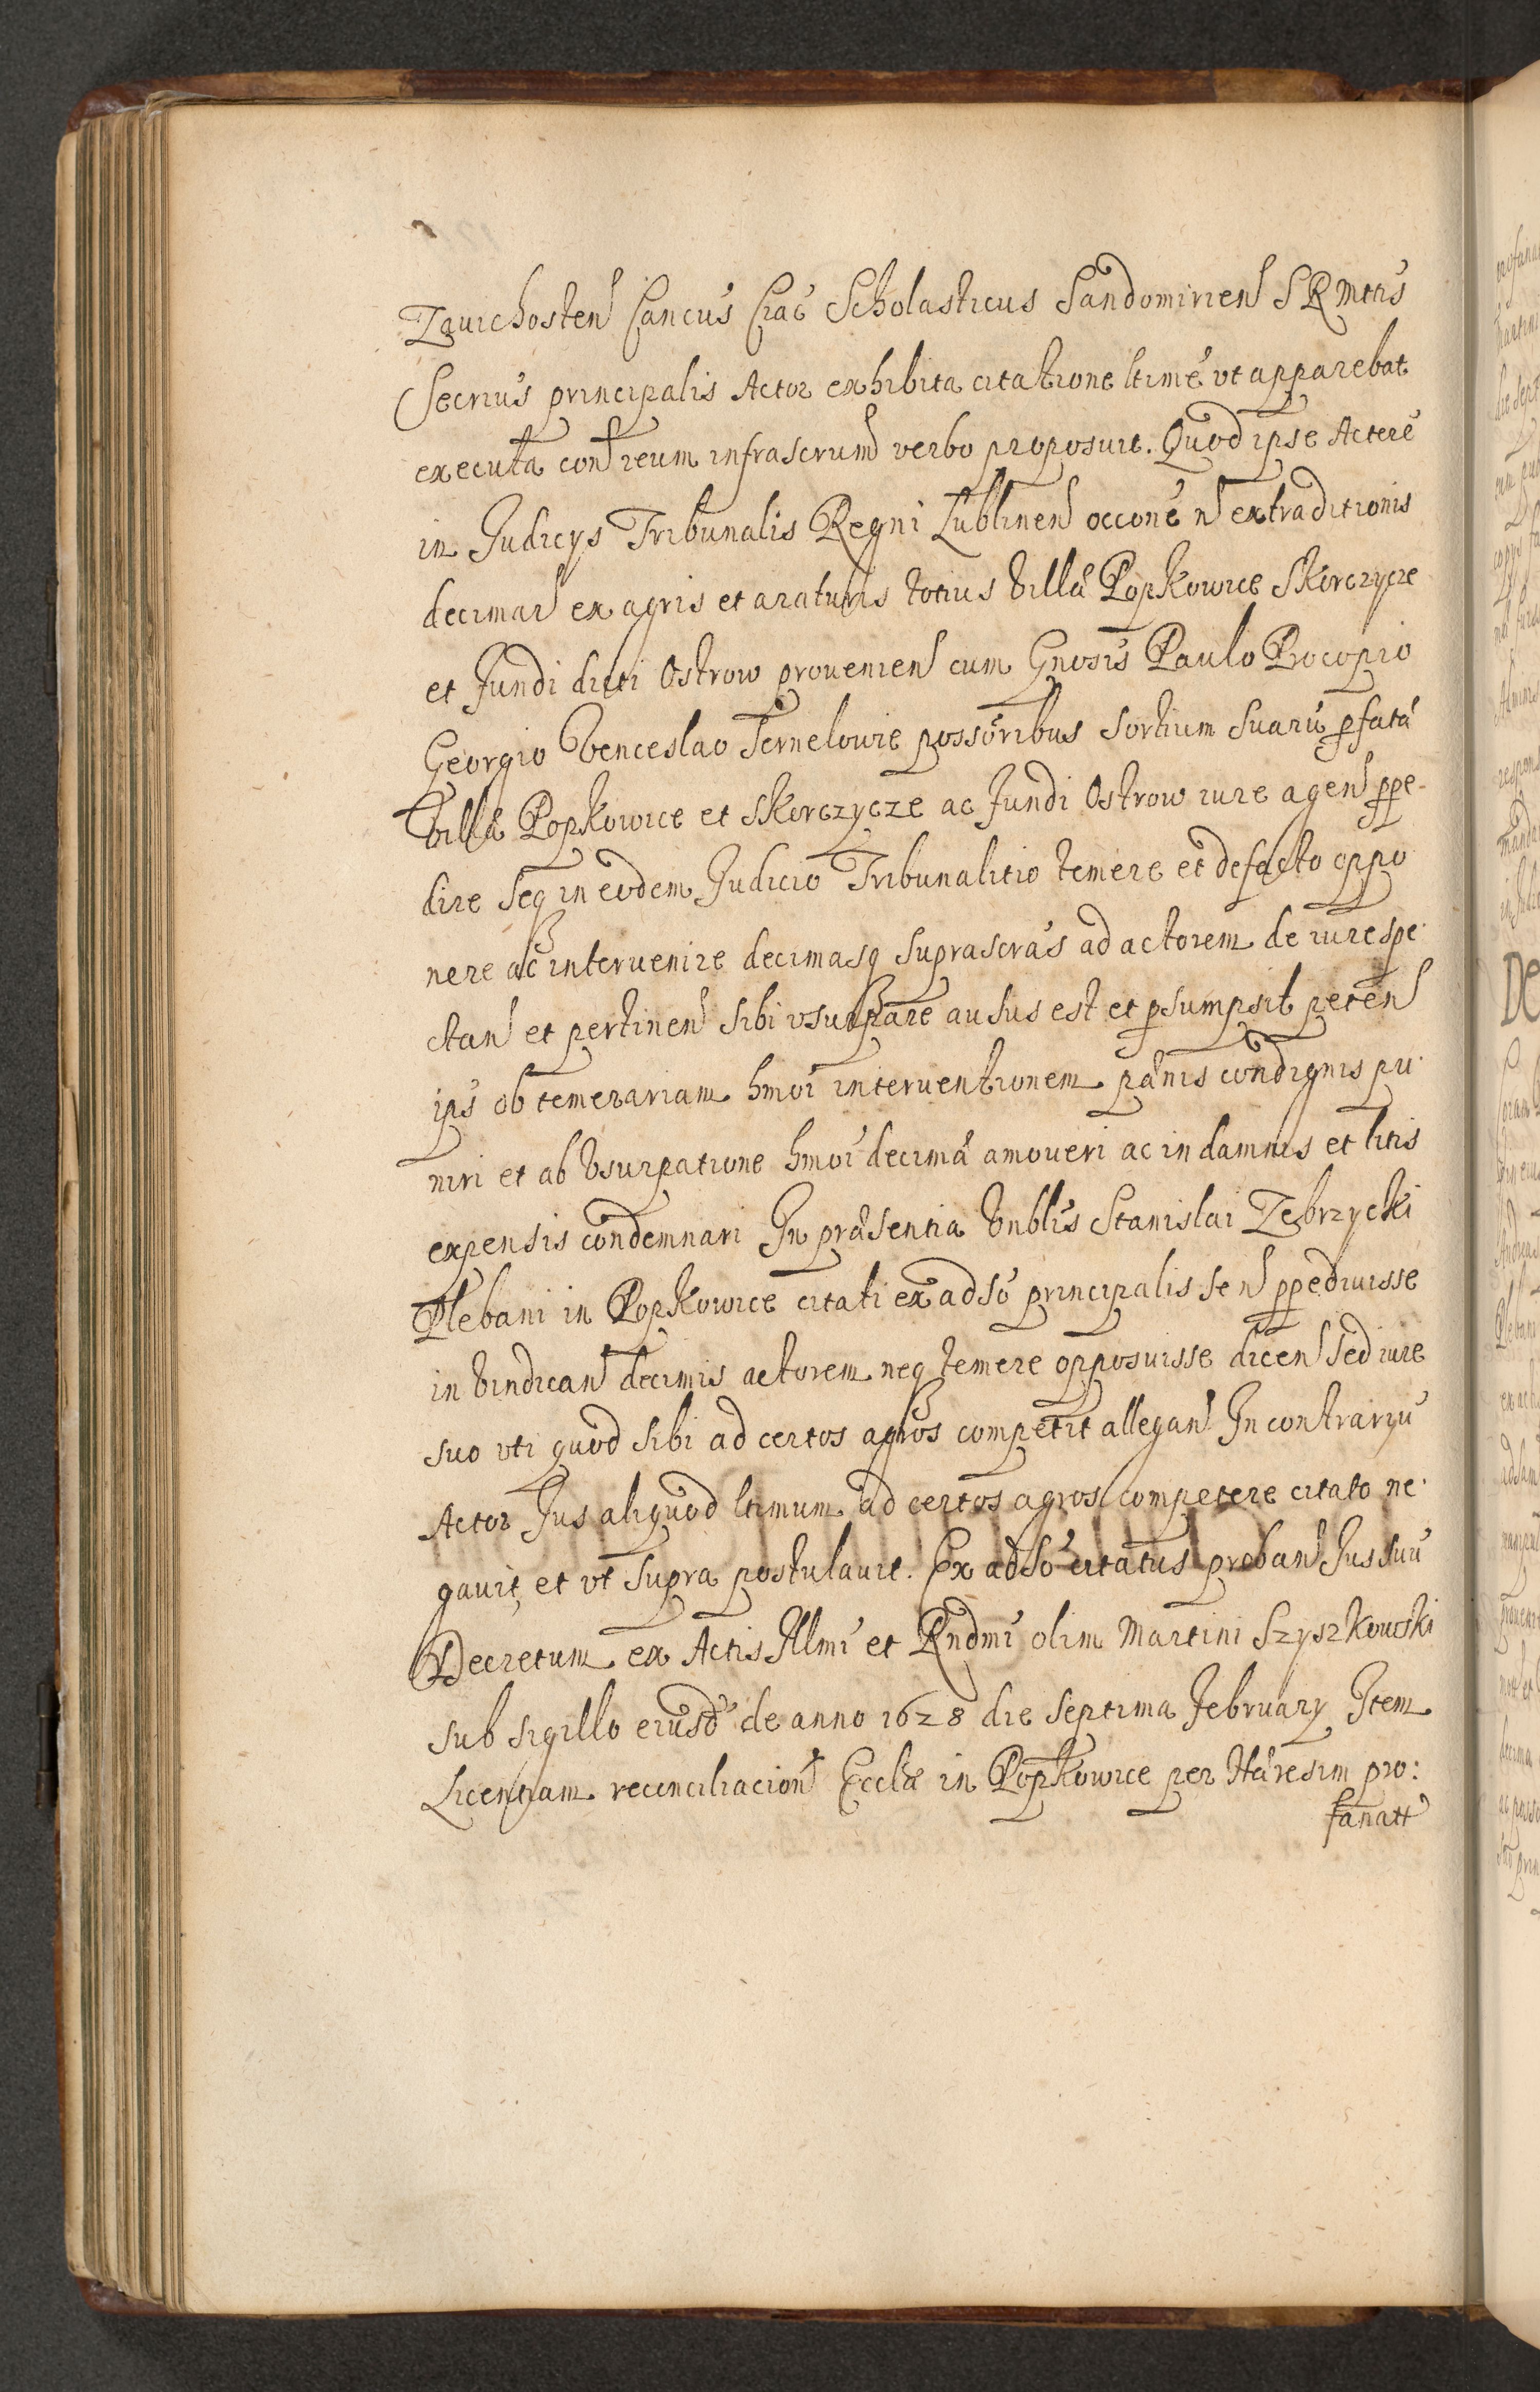 Zavichosten Cancus Crac Scholasticus Sandomirien S R Mttis
Secrius principalis Actor exhibita citatione ltime vt apparebat
executa con reum infrascrum verbo proposuit. Quod ipse Actore
in Judicys Tribunalis Regni Lublinen occone n extraditionis
decimar ex agris et araturis totius villæ Popkowice Skorczycze
et fundi dicti Ostrow provenien cum Gnosis Paulo Procopio
Georgio Venceslao Sernelowie possoribus sortium suarū pfatæ
Villæ Popkowice et Skorczycze ac fundi Ostrow iure agen ppe-
dire seq in eodem Judicio Tribunalitio temere et defacto oppo
nere ac intervenire decimasq suprascras ad actorem de iure spe
ctan et pertinen sibi vsurpare ausus est et psumpsit peten
ips ob temerariam hmoi interventionem pænis condignis pu
niri et ab vsurpatione hmoi decimæ amoveri ac in damnis et litis
expensis condemnari In præsentia Vnblis Stanislai Zebrzycki
Plebani in Popkowice citati ex adso principalis se n ppediuisse
in vindican decimis actorem neq temere opposuisse dicen sed iure
suo vti quod sibi ad certos agros competit allegan In contrariū
Actor Jus aliquod ltimum ad certos agros competere citato ne
gavit et vt supra postulavit. Ex adso citatus proban Jus suū
Decretum ex Actis Illmi et Rndmi olim Martini Szyszkowski
sub sigillo eiusd de anno 1628 die septima February Item
Licentiam reconciliacion Ecclæ in Popkowice per Hæresim pro:
fanatt